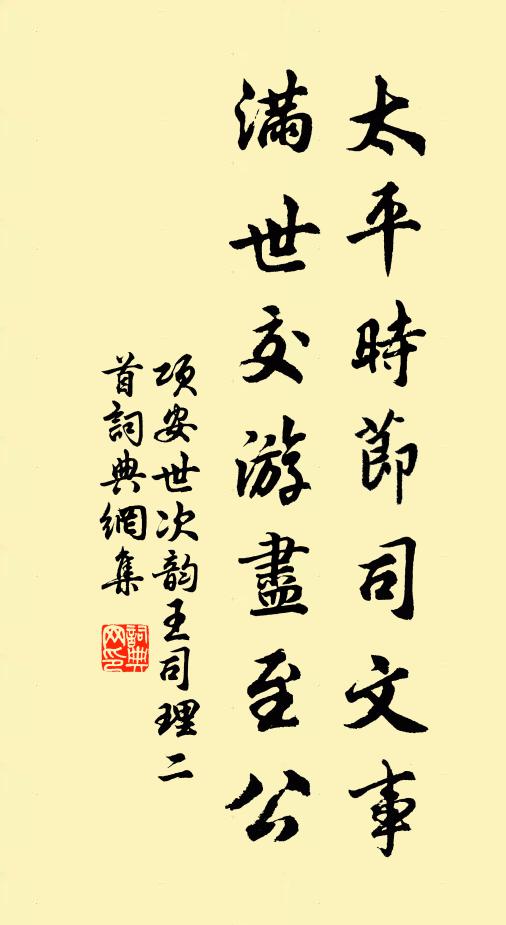 太平時節司文事
滿世交游盡至公
項安世次韵王司理二
首詞典網集
詞典
网印